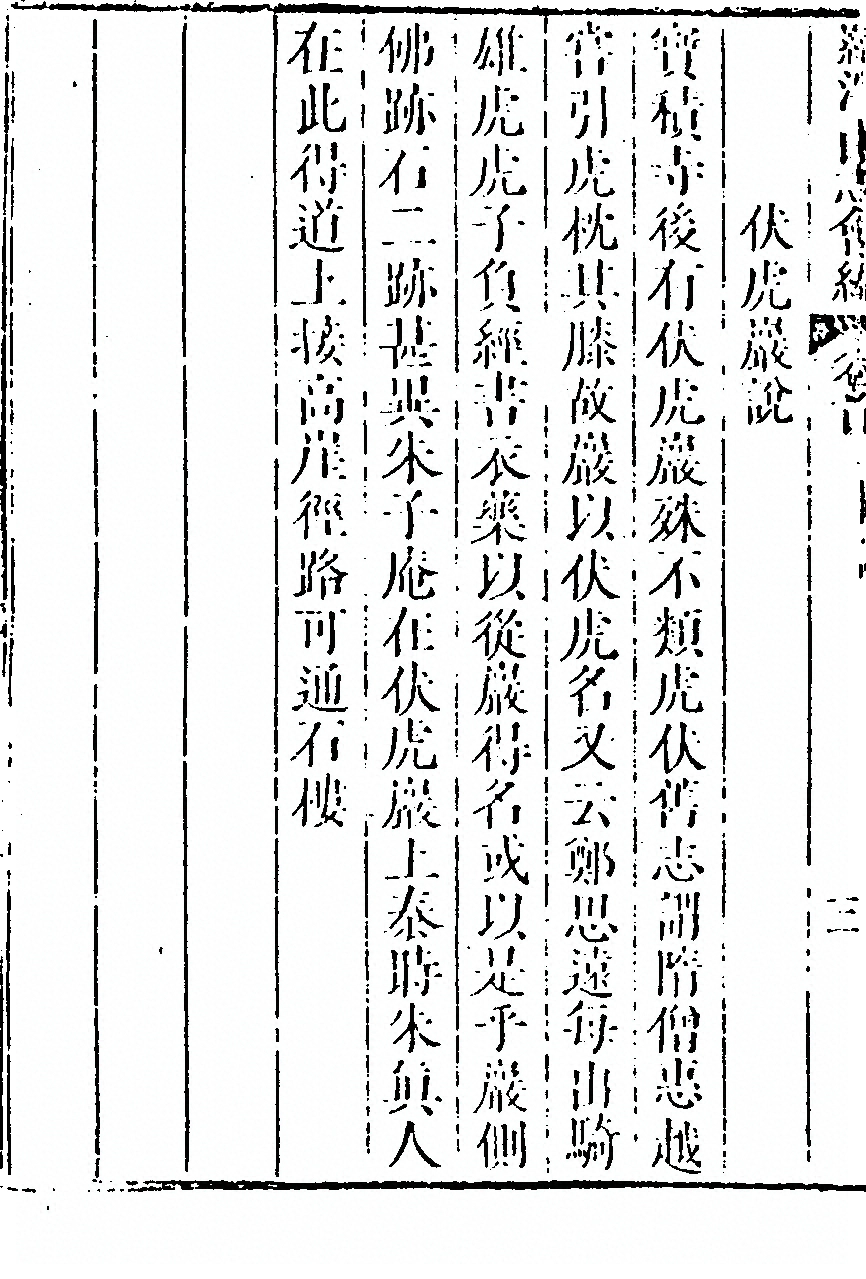 羅浮山志會編
三
伏虎巖說
寶積寺後有伏虎巖殊不類虎伏舊志謂隋僧惠越
嘗引虎枕其膝故巖以伏虎名又云鄭思遠每出騎
雄虎虎子負經書衣藥以從巖得名或以是乎巖側
佛跡石二跡甚異朱子庵在伏虎巖上秦時朱眞人
在此得道上接高崖徑路可通石樓